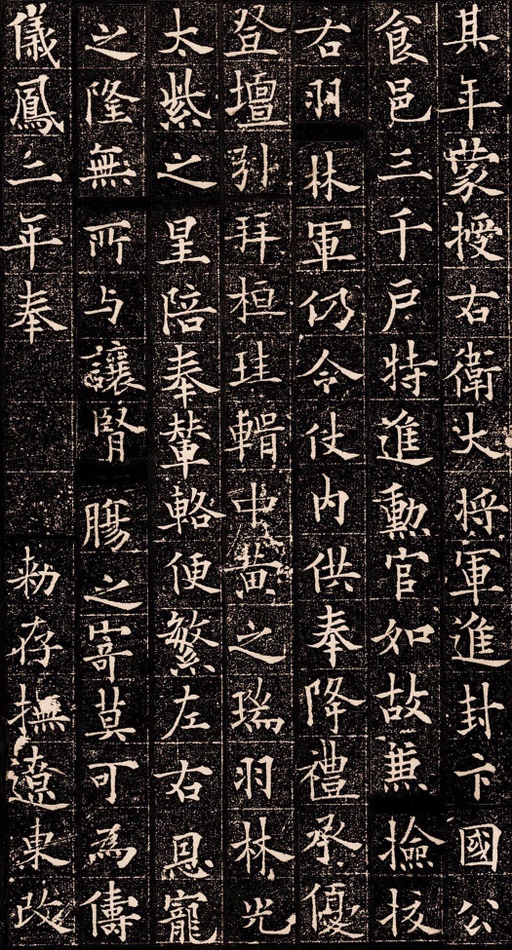 其年蒙授右衛大将軍進封卞國公
食邑三千户特進勳官如故兼撿挍
右羽林軍仍令仗内供奉降禮承優
登壇引拜桓珪輯中黄之瑞羽林光
太紫之星陪奉輦輅便繁左右恩寵
之隆無所与讓腎腸之寄莫可為儔
儀鳳二年奉　　　勑存撫遼東改